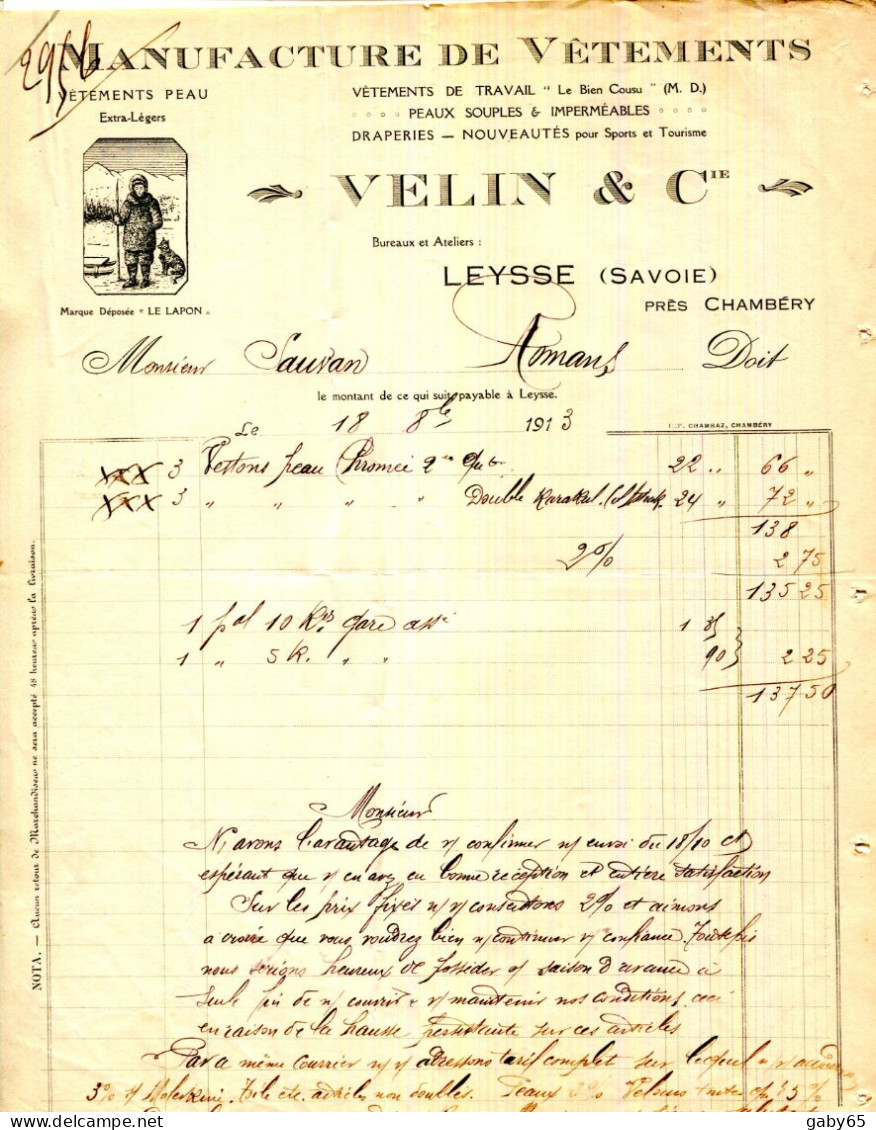 2956
MANUFACTURE DE VÊTEMENTS
VÊTEMENTS PEAU
Extra-Légers
VÊTEMENTS DE TRAVAIL " Le Bien Cousu " (M. D.)
PEAUX SOUPLES & IMPERMÉABLES
DRAPERIES — NOUVEAUTÉS pour Sports et Tourisme
VELIN & CIE
Bureaux et Ateliers :
LEYSSE (SAVOIE)
PRÈS CHAMBÉRY
Marque Déposée " LE LAPON "
Monsieur Sauvan Romans Doit
le montant de ce qui suit payable à Leysse.
Le 18 8bre 1913
IMP. CHAMBAZ, CHAMBÉRY
XXX 3 Vestons peau Chromée 2me 22 " 66 "
XXX 3 " " " " Double Karakul. 24 " 72 "
138
2% 2 75
135 25
1 pal 10 Kos gare 1 35
1 " 5 k. " " 90 2 25
137 50
NOTA. — Aucun retour de Marchandises ne sera accepté 48 heures après la livraison.
Monsieur
N/ avons l'avantage de v/ confirmer n/ envoi du 18/10 et
espérant que v/ en avez eu bonne réception et entière satisfaction
Sur les prix fixés n/ v/ consentons 2% et aimons
a croire que vous voudrez bien n/ continuer v/ confiance. Toutefois
nous serions heureux de posséder v/ saison d'avance à
seule fin de n/ couvrir & v/ maintenir nos conditions, ceci
en raison de la hausse persistante sur ces articles
Par même courrier n/ v/ adressons tarif complet sur lequel n/ v/
3% s/ Moleskine. Toile etc. articles non doublés. Peaux 2% Velours 3%
delcampe.net
gaby65